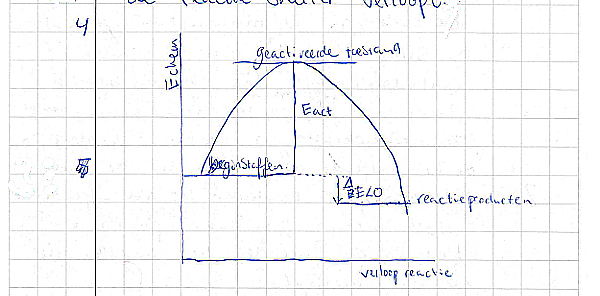 de reactie sneller verloopt.
4
Echem
geactiveerde toestand
Eact
beginstoffen.
ΔE<0
reactieproducten
verloop reactie